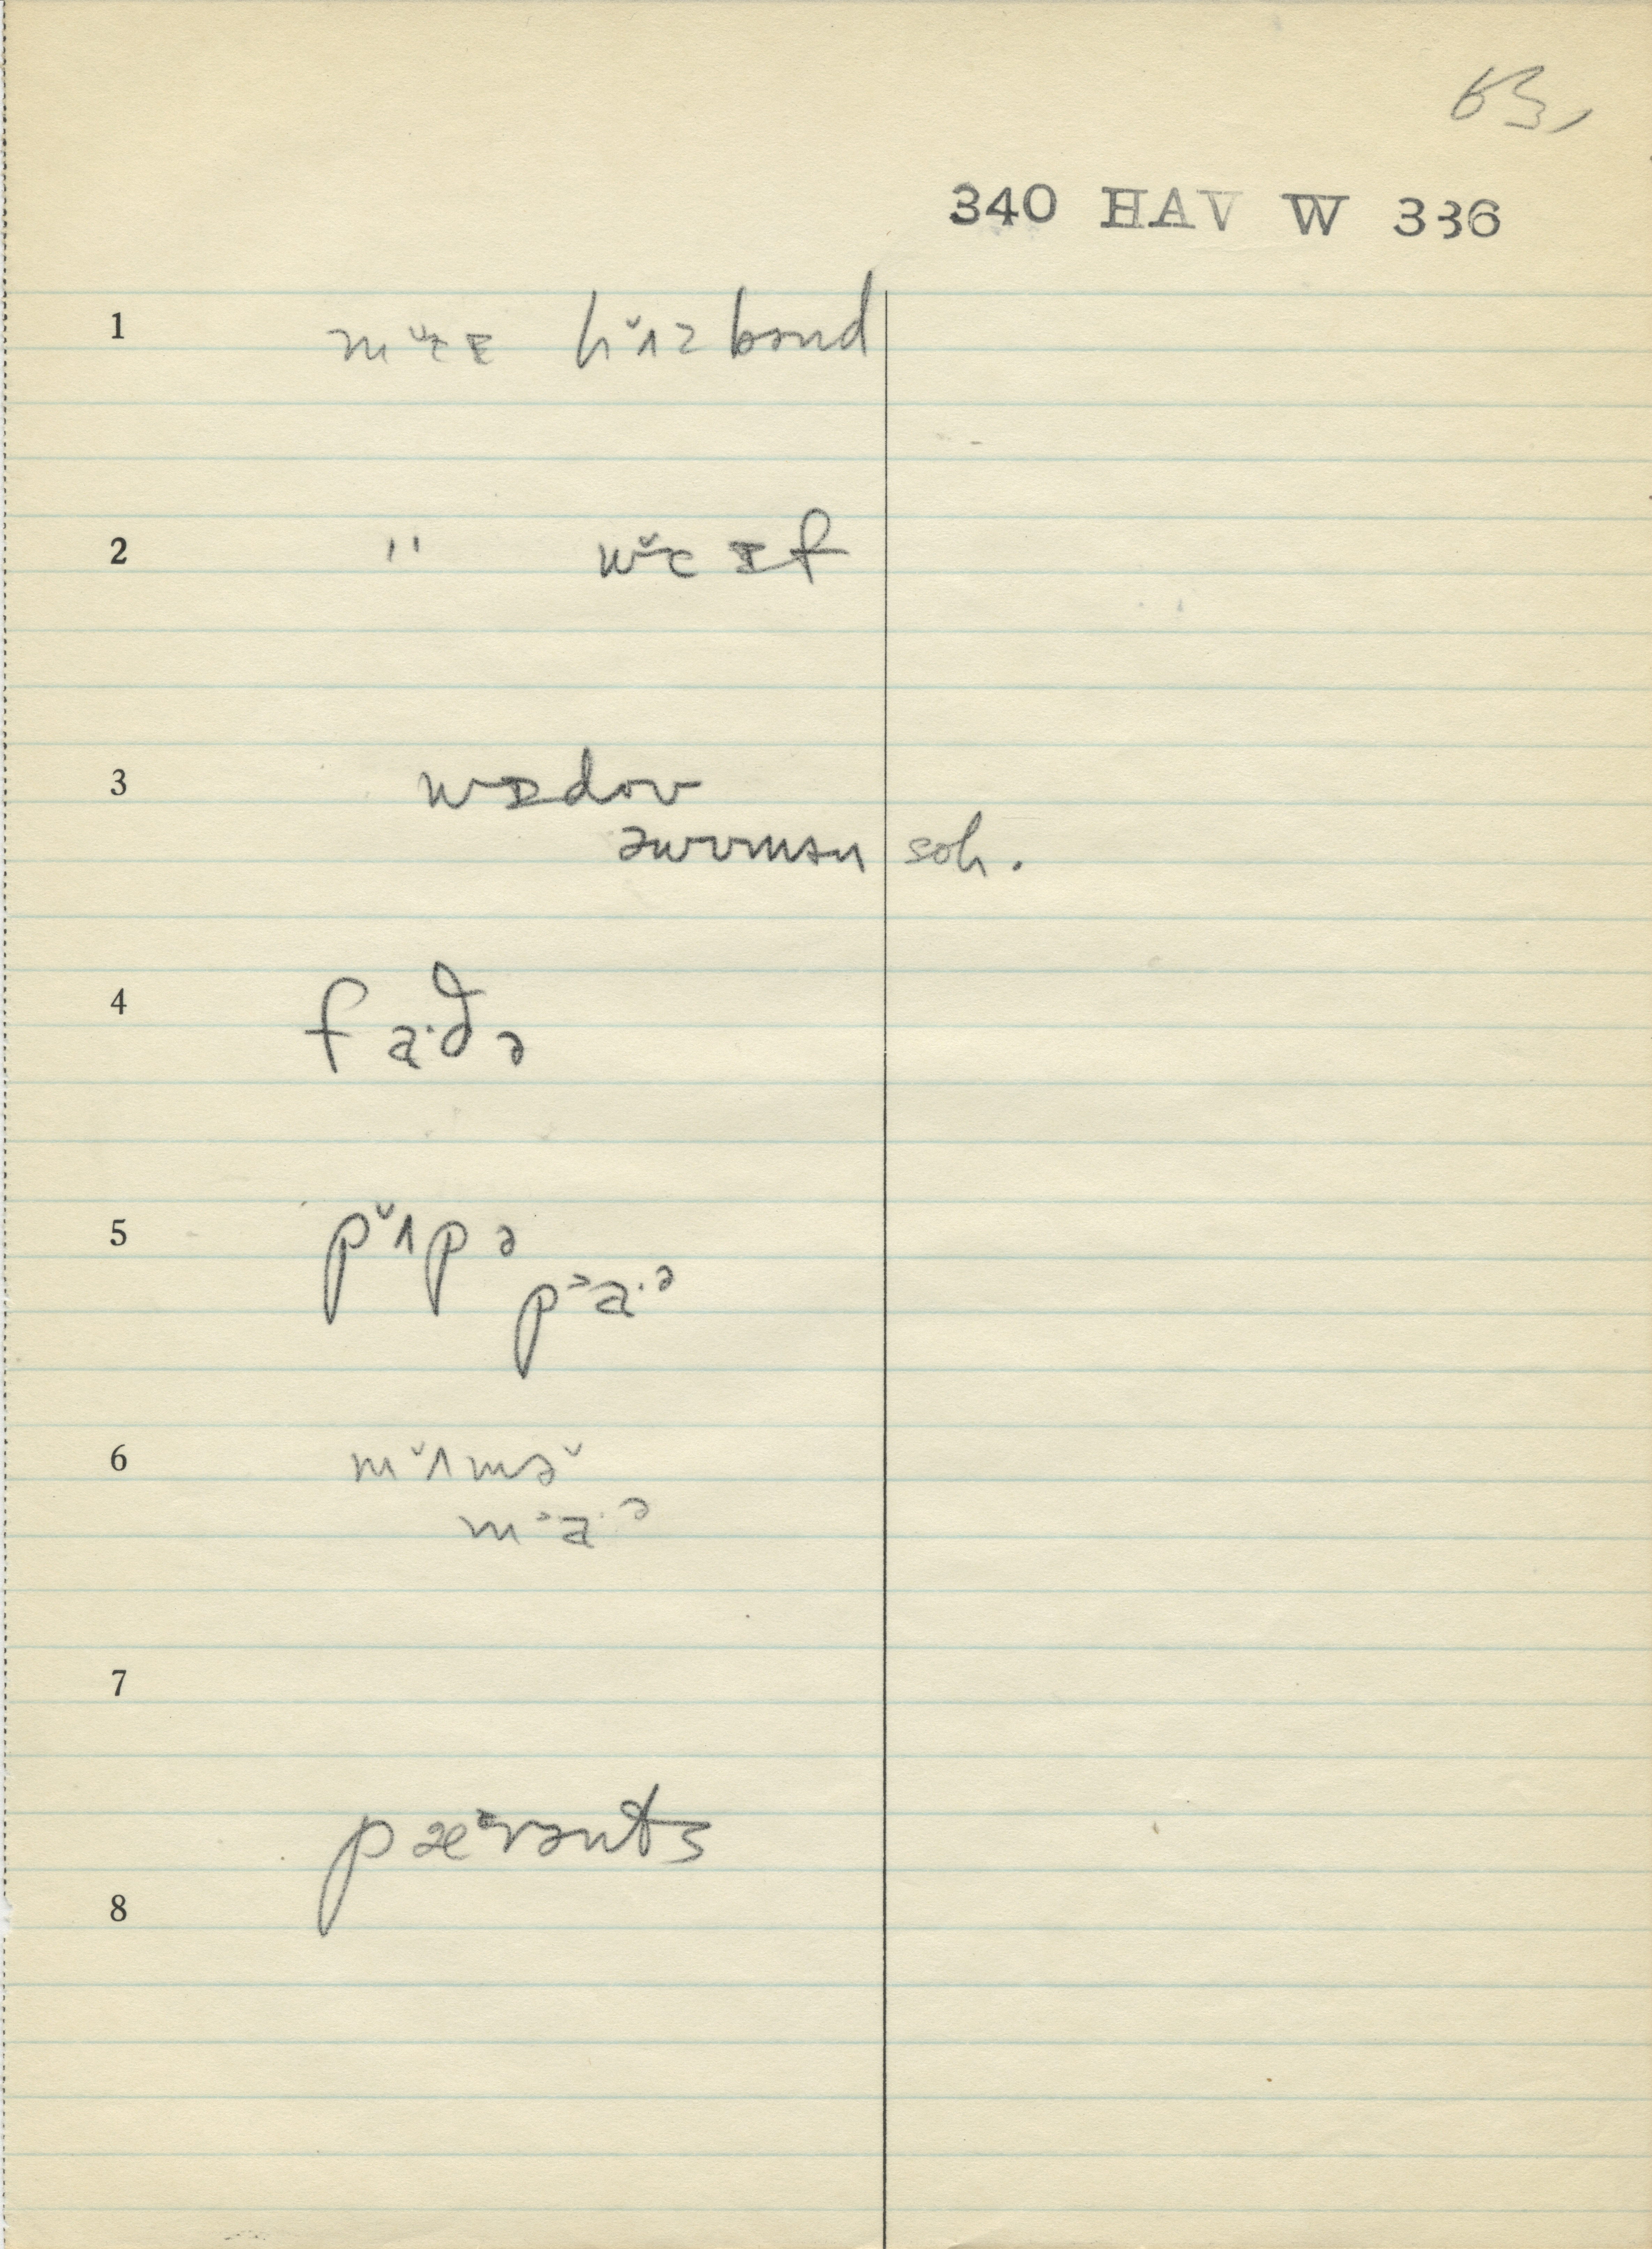 63,
340 HAV W 336
1 m ɐ̌ɛ ɪ hʌ̌zbənd
2 " wɐ̌ɛ ɪf
3 wɪdov
əwvmən soh.
4 fa·ðə
5 pʌ̌pə
pᵊa·ᵊ
6 mʌ̌mə̌
mᵊa·ᵊ
7
pæᶦrənts
8